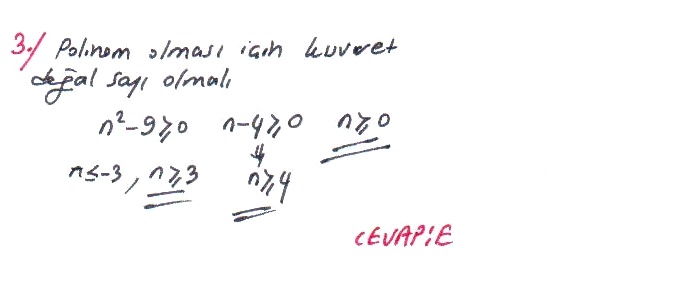 3./ Polinom olması için kuvvet
doğal sayı olmalı
n²-9≥0 n-4≥0 n≥0
n≤-3, n≥3 n≥4
CEVAP:E